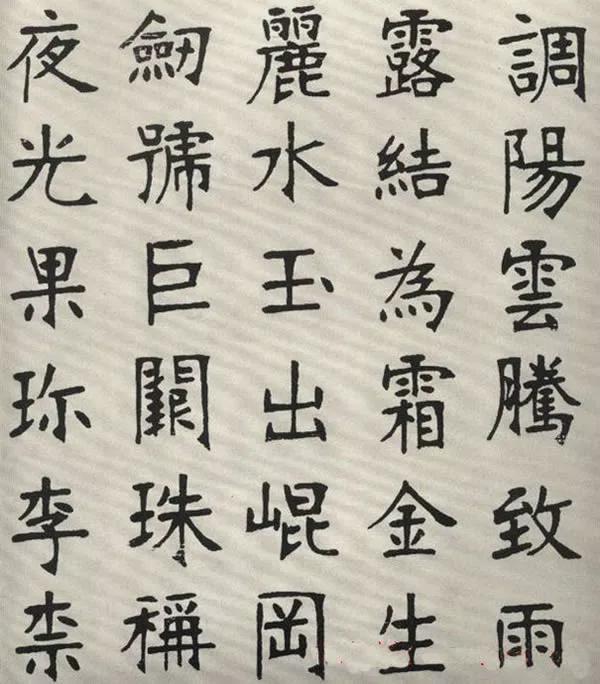 調陽雲騰致雨
露結為霜金生
麗水玉出崐岡
劒號巨闕珠稱
夜光果珎李柰